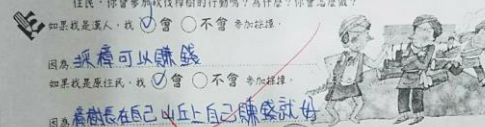 住民,你會參加砍伐樟樹的行動嗎?為什麼?你會怎麼做?
如果我是漢人,我 會 不會 參加採樟。
因為 採樟可以賺錢
如果我是原住民,我 會 不會 參加採樟。
因為 樟長在自己山丘上自己賺錢就好